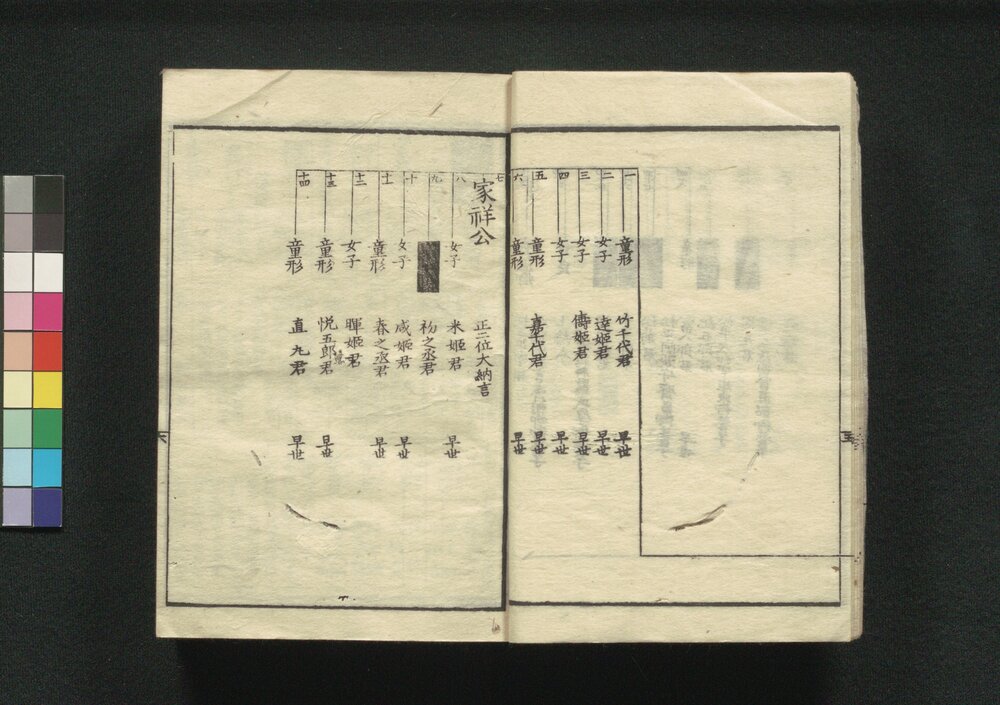 一 童形 竹千代君 早世
二 女子 達姫君 早世
三 女子 儔姫君 早世
四 女子 早世
五 童形 嘉千代君 早世
六 童形 早世
七 家祥公 正二位大納言
八 女子 米姫君 早世
九 初之丞君
十 女子 咸姫君 早世
十一 童形 春之丞君 早世
十二 女子 暉姫君
十三 童形 悦五郎君 早世
十四 童形 直丸君 早世
五
六